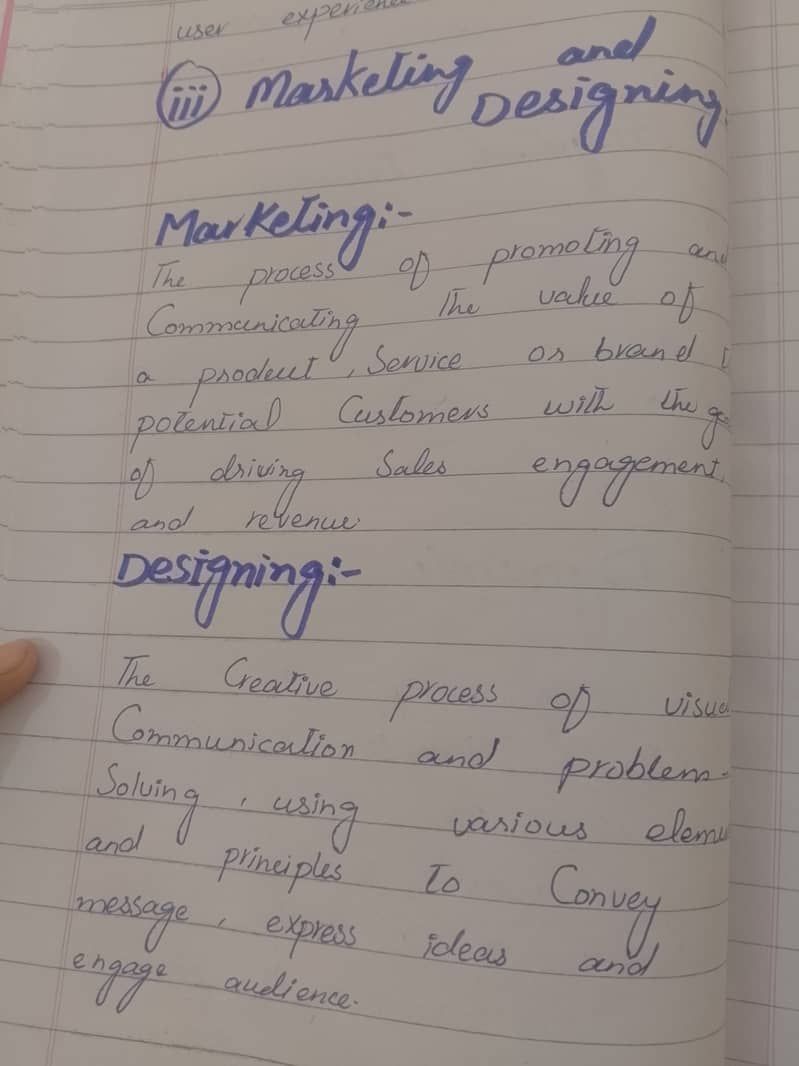 user experience
iii Marketing and
Designing
Marketing:-
The process of promoting and
Communicating The value of
a product, Service or brand
potential Customers with the
of driving Sales engagement,
and revenue.
Designing:-
The Creative process of
Communication and problem-
Solving, using various
and principles To Convey
message, express ideas and
engage audience.